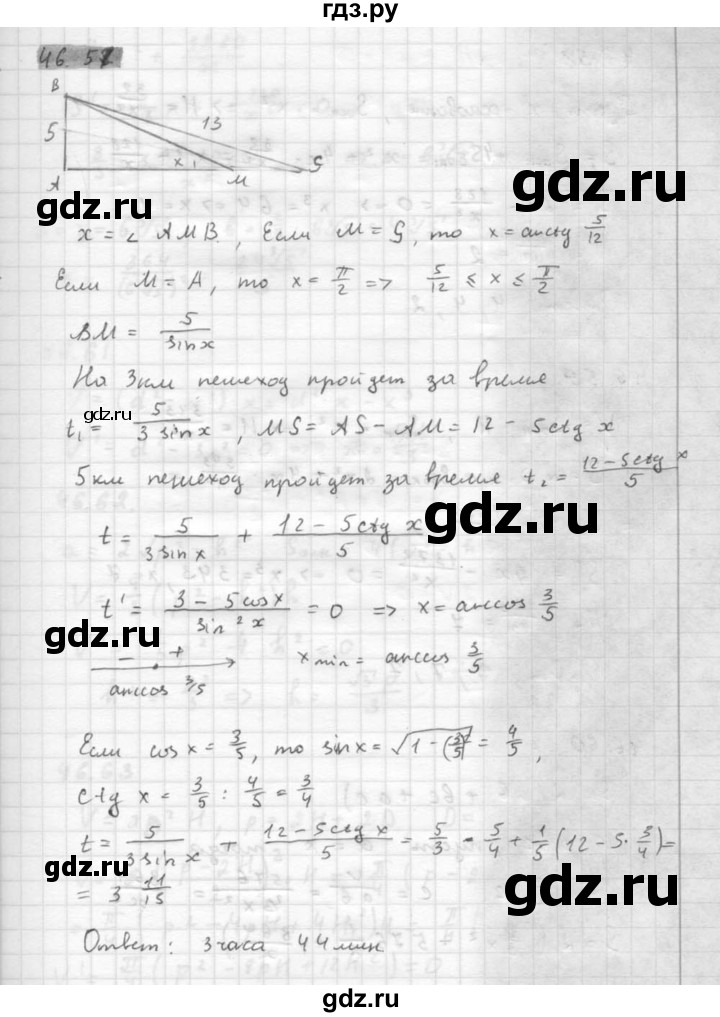 гдз.ру
46.51
B
5
13
x
A
M
S
x = ∠ AMB, Если M = S, то x = arcctg 5/12
Если M = A, то x = π/2 => 5/12 ≤ x ≤ π/2
BM = 5/sin x
На 3км пешеход пройдет за время
gdz.ru
t₁ = 5/3 sin x, MS = AS - AM = 12 - 5ctg x
5км пешеход пройдет за время t₂ = 12-5ctg x/5
gdz.ru
t = 5/3 sin x + 12 - 5ctg x/5
t' = 3 - 5cosx/sin² x = 0 => x = arccos 3/5
gdz.ru
- +
arccos 3/5
x min = arccos 3/5
gdz.ru
Если cos x = 3/5, то sin x = √1 - (3/5)² = 4/5,
ctg x = 3/5 : 4/5 = 3/4
t = 5/3 sin x + 12-5ctg x/5 = 5/3 · 5/4 + 1/5 (12 - 5 · 3/4) =
gdz.ru
gdz.ru
= 3 11/15
Ответ: 3 часа 44 мин
gdz.ru
gdz.ru